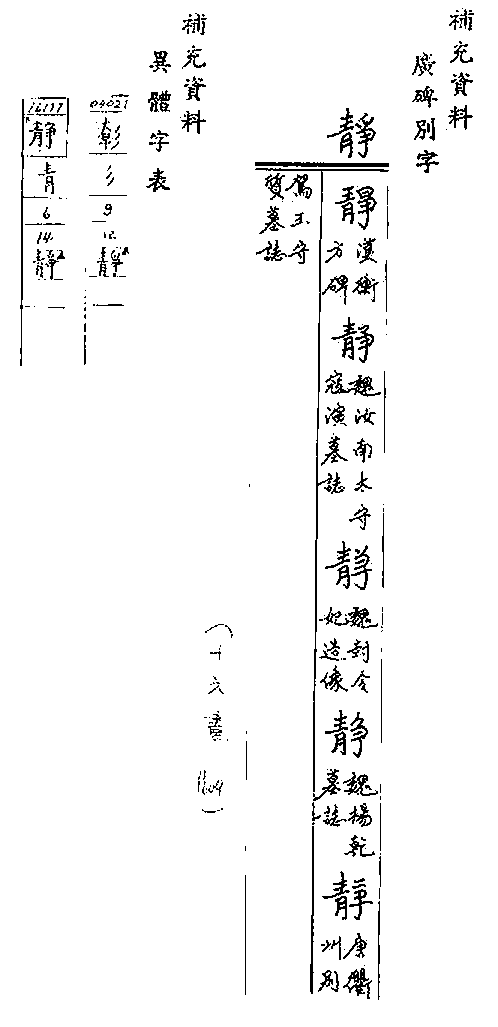 補充資料
廣碑別字
靜
靜漢衡方碑
靜魏汝南太守寇演墓誌
靜魏封令妃造像
靜魏楊乾墓誌
靜唐衢州別
駕王守質墓誌
(十六畫 1604)
補充資料
異體字表
彡
9
12
靜
靜
青
6
14
靜